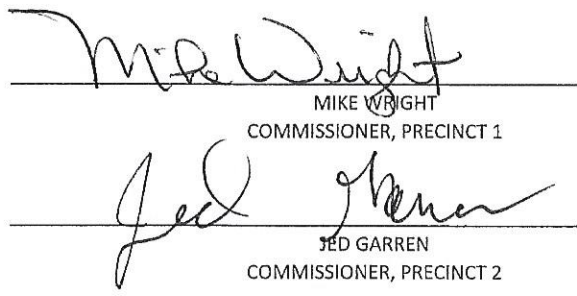 Mike Wright
MIKE WRIGHT
COMMISSIONER, PRECINCT 1
Jed Garren
JED GARREN
COMMISSIONER, PRECINCT 2